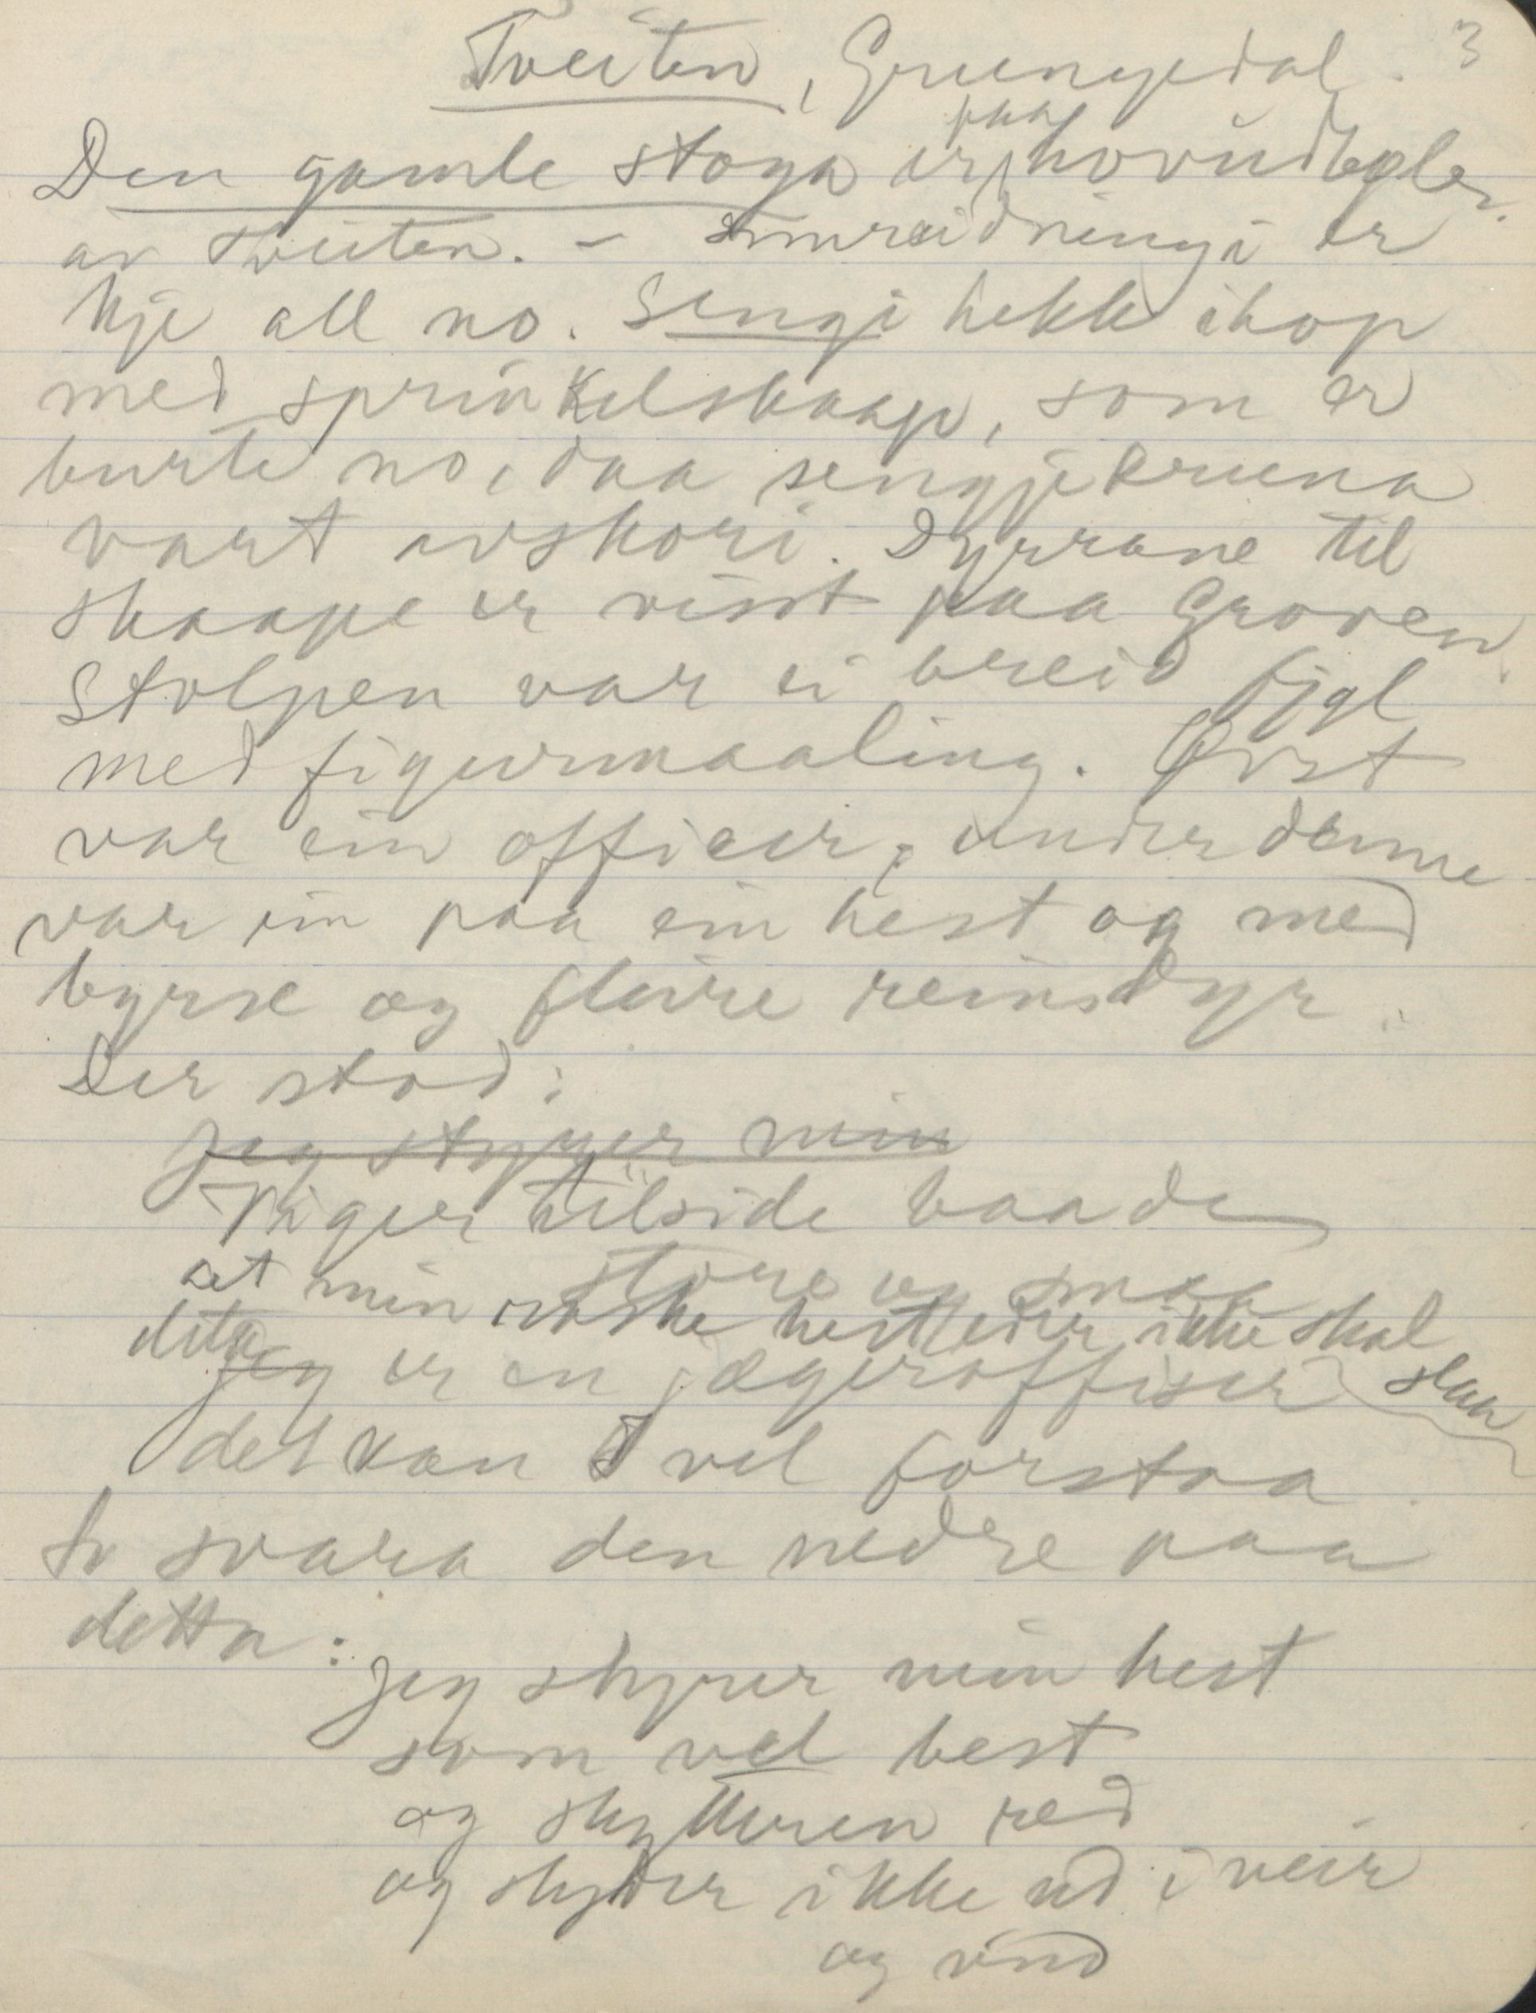 Tveiten, Grungedal. 3
Den gamle stoga er paa hovudbøler
av Tveiten. - innreidningi er
kje all no. Sengi hekk ihop
med sprinkelskaap, som er
burte no, daa sengjekruna
vart avskori. Dyrrane til
skaape er visst paa Groven
Stolpen var ei breid fjøl
med figurmaaling. Øvst
var ein officer, under denne
var ein paa ein hest og med
byrse og fleire reinsdyr.
Der stod:
Jeg styrer min
Viger tilside baade
store og smaa
at min raske hest eder ikke skal
slaa
Jeg er en jægeroffiser
det kan I vel forstaa.
So svara den nedre paa
detta:
Jeg styrer min hest
som vel best
og skytteren red
og skyder ikke ud i veir
og vind